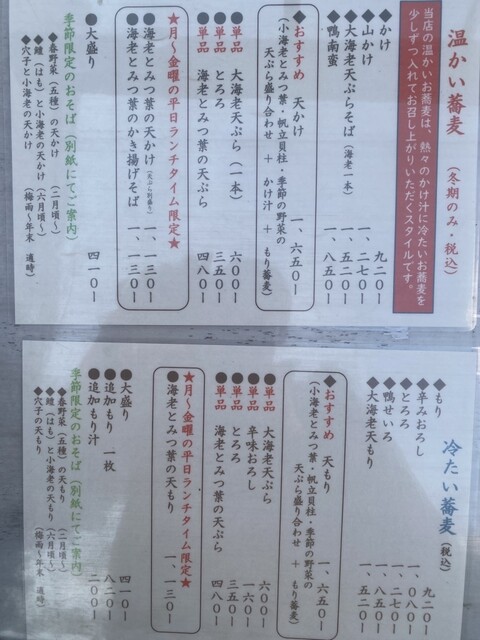 温かい蕎麦 (冬期のみ・税込)
当店の温かいお蕎麦は、熱々のかけ汁に冷たいお蕎麦を
少しずつ入れてお召し上がりいただくスタイルです。
◆かけ 九二〇ー
◆山かけ 一、二七〇ー
◆大海老天ぷらそば(海老一本) 一、五二〇ー
◆鴨南蛮 一、八五〇ー
◆おすすめ 天かけ 一、六五〇ー
(小海老とみつ葉・帆立貝柱・季節の野菜の
天ぷら盛り合わせ + かけ汁 + もり蕎麦)
●単品 大海老天ぷら(一本) 六〇〇ー
●単品 とろろ 三五〇ー
●単品 海老とみつ葉の天ぷら 四八〇ー
★月~金曜の平日ランチタイム限定★
●海老とみつ葉の天かけ(天ぷら別盛り) 一、一三〇ー
●海老とみつ葉のかき揚げそば 一、一三〇ー
●大盛り 四一〇ー
季節限定のおそば(別紙にてご案内)
◆春野菜(五種)の天かけ (二月頃~)
◆鱧(はも)と小海老の天かけ (六月頃~)
◆穴子と小海老の天かけ (梅雨~年末 適時)
冷たい蕎麦 (税込)
◆もり 九二〇ー
◆辛みおろし 一、〇八〇ー
◆とろろ 一、二七〇ー
◆鴨せいろ 一、八五〇ー
◆大海老天もり 一、五二〇ー
◆おすすめ 天もり 一、六五〇ー
(小海老とみつ葉・帆立貝柱・季節の野菜の
天ぷら盛り合わせ + もり蕎麦)
●単品 大海老天ぷら 六〇〇ー
●単品 辛味おろし 一六〇ー
●単品 とろろ 三五〇ー
●単品 海老とみつ葉の天ぷら 四八〇ー
★月~金曜の平日ランチタイム限定★
●海老とみつ葉の天もり 一、一三〇ー
●大盛り 四一〇ー
●追加もり 一枚 八二〇ー
●追加もり汁 二〇〇ー
季節限定のおそば(別紙にてご案内)
◆春野菜(五種)の天もり (二月頃~)
◆鱧(はも)と小海老の天もり (六月頃~)
◆穴子の天もり (梅雨~年末 適時)